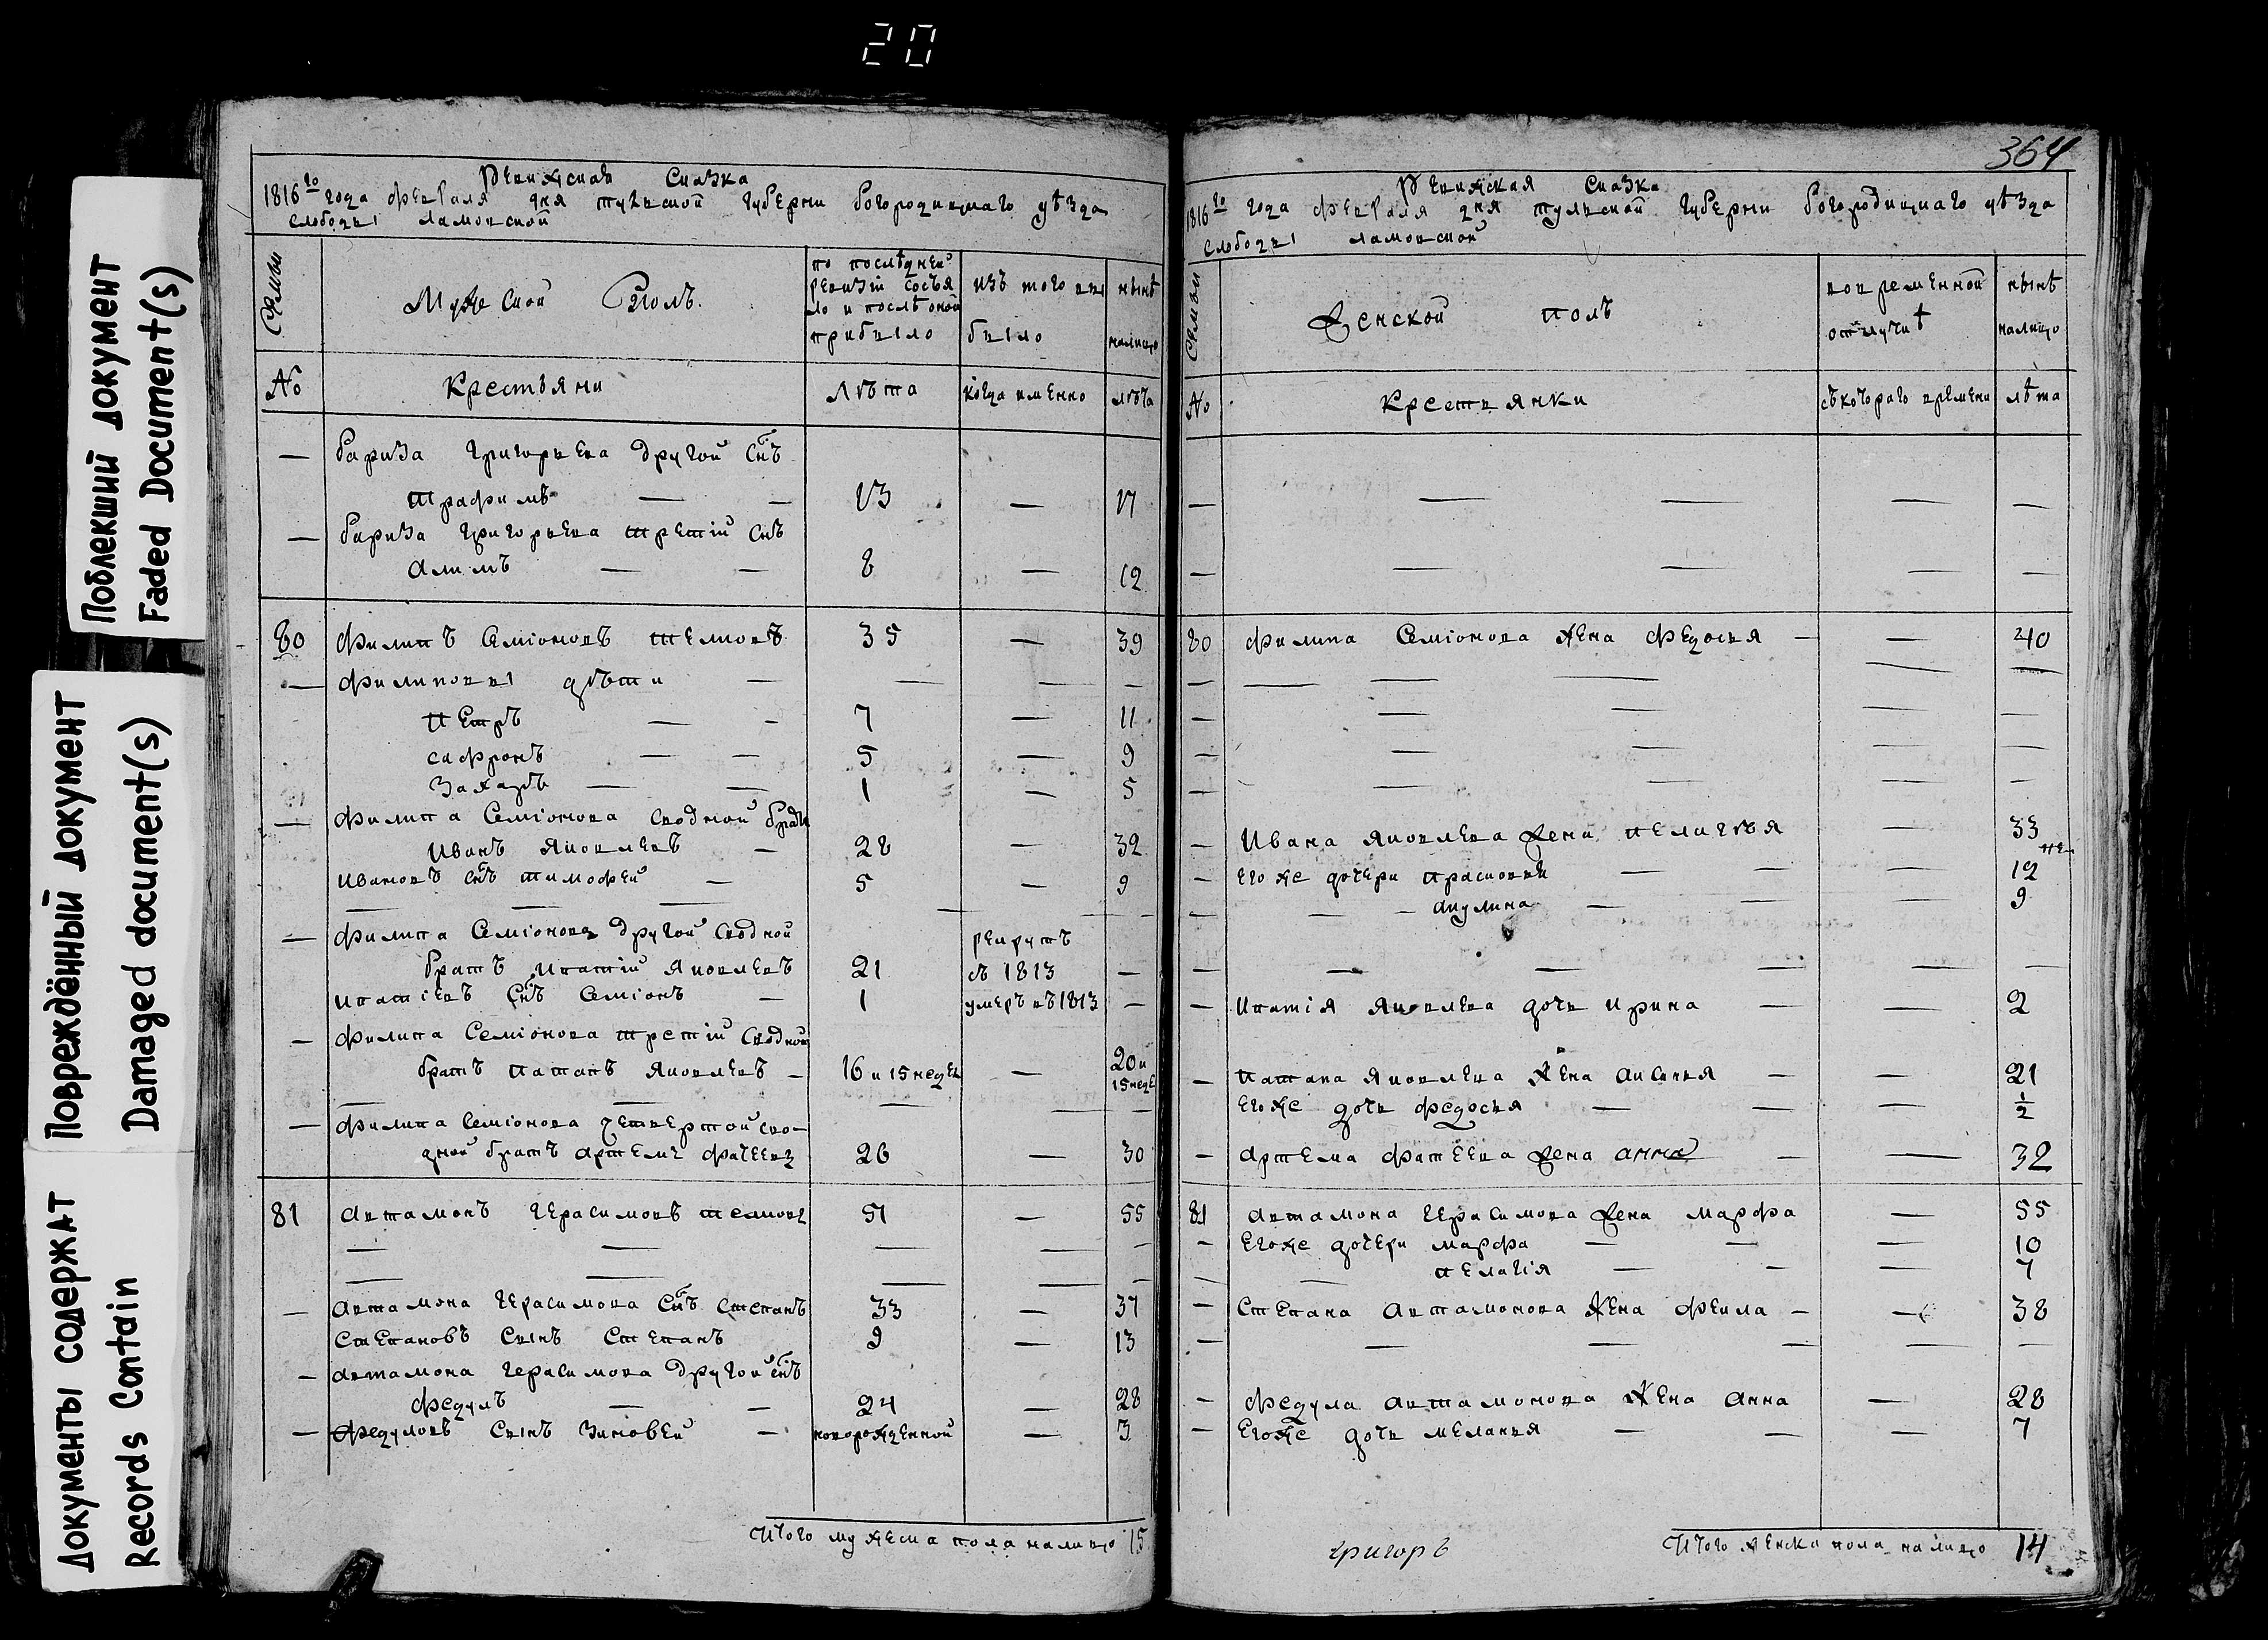 20
Поблекший документ
Faded Document(s)
Повреждённый документ
Damaged document(s)
Документы содержат
Records Contain
Ревижская Сказка
1816го года февраля дня тульской губерни богородицкаго уѣзда
слободы ламовской
Семьи
Мужеской Полъ
по послѣдней ревизіи состья ло и послѣ оной прибыло
изъ того вы было
нынѣ налицо
№
Крестьяни
лѣта
когда именно
лѣта
— бариза григорьева другой снъ
трафимъ — — 13 — 17
— бариза григорьева третій снъ
алимъ — — 8 — 12
80 филипъ Семіоновъ 35 — 39
— филиповы дѣти — — — —
петръ — — 7 — 11
сафронъ — — 5 — 9
Захаръ — — 1 — 5
— филипа Семіонова сводной братъ
Иванъ Яковлевъ — 28 — 32
Ивановъ снъ тимофей — 5 — 9
— — — — — —
— филипа Семіонова другой сводной рекрутъ
братъ ипатій Яковлевъ 21 съ 1813 —
ипатіевъ снъ Семіонъ — 1 умеръ въ 1813 —
— филипа Семіонова третій сводной
братъ патапъ Яковлевъ — 16 и 15 недел — 20 и 15 недел
— — — — —
— филипа Семіонова четвертой сво-
дной братъ артемъ фатеевъ 26 — 30
81 автамонъ герасимовъ 51 — 55
— — — — —
— — — — —
— автамона герасимова снъ степанъ 33 — 37
степановъ сынъ степанъ 9 — 13
— автамона герасимова другой снъ
федулъ — — 24 — 28
— федуловъ сынъ зиновей — новорожденной — 3
Итого мужеска пола налицо 15
364
Ревижская Сказка
1816го года февраля дня тульской губерни богородицкаго уѣзда
слободы ламовской
Семьи
Женской полъ
вовременной отлучкѣ
нынѣ налицо
№
Крестьянки
съ котораго времени
лѣта
— — — — —
— — — — —
80 филипа Семіонова жена федосья — — 40
— — — — —
— — — — —
— — — — —
— — — — —
— Ивана Яковлева жена пелагѣя — 33
— его же дочери прасковья — — — 12
— — — акулина — — — 9
— — — — — —
— ипатія Яковлева дочь ирина — — 2
— патапа Яковлева жена аксинья — — 21
его же дочь федосья — — — ½
— артема фатеева жена анна — — 32
81 автамона герасимова жена марфа — 55
— его же дочери марфа — — — 10
— — пелагія — — — 7
— степана автамонова жена фекла — — 38
— — — — — —
— федула автамонова жена анна — 28
— его же дочь меланья — — — 7
григоръ
Итого женска пола налицо 14